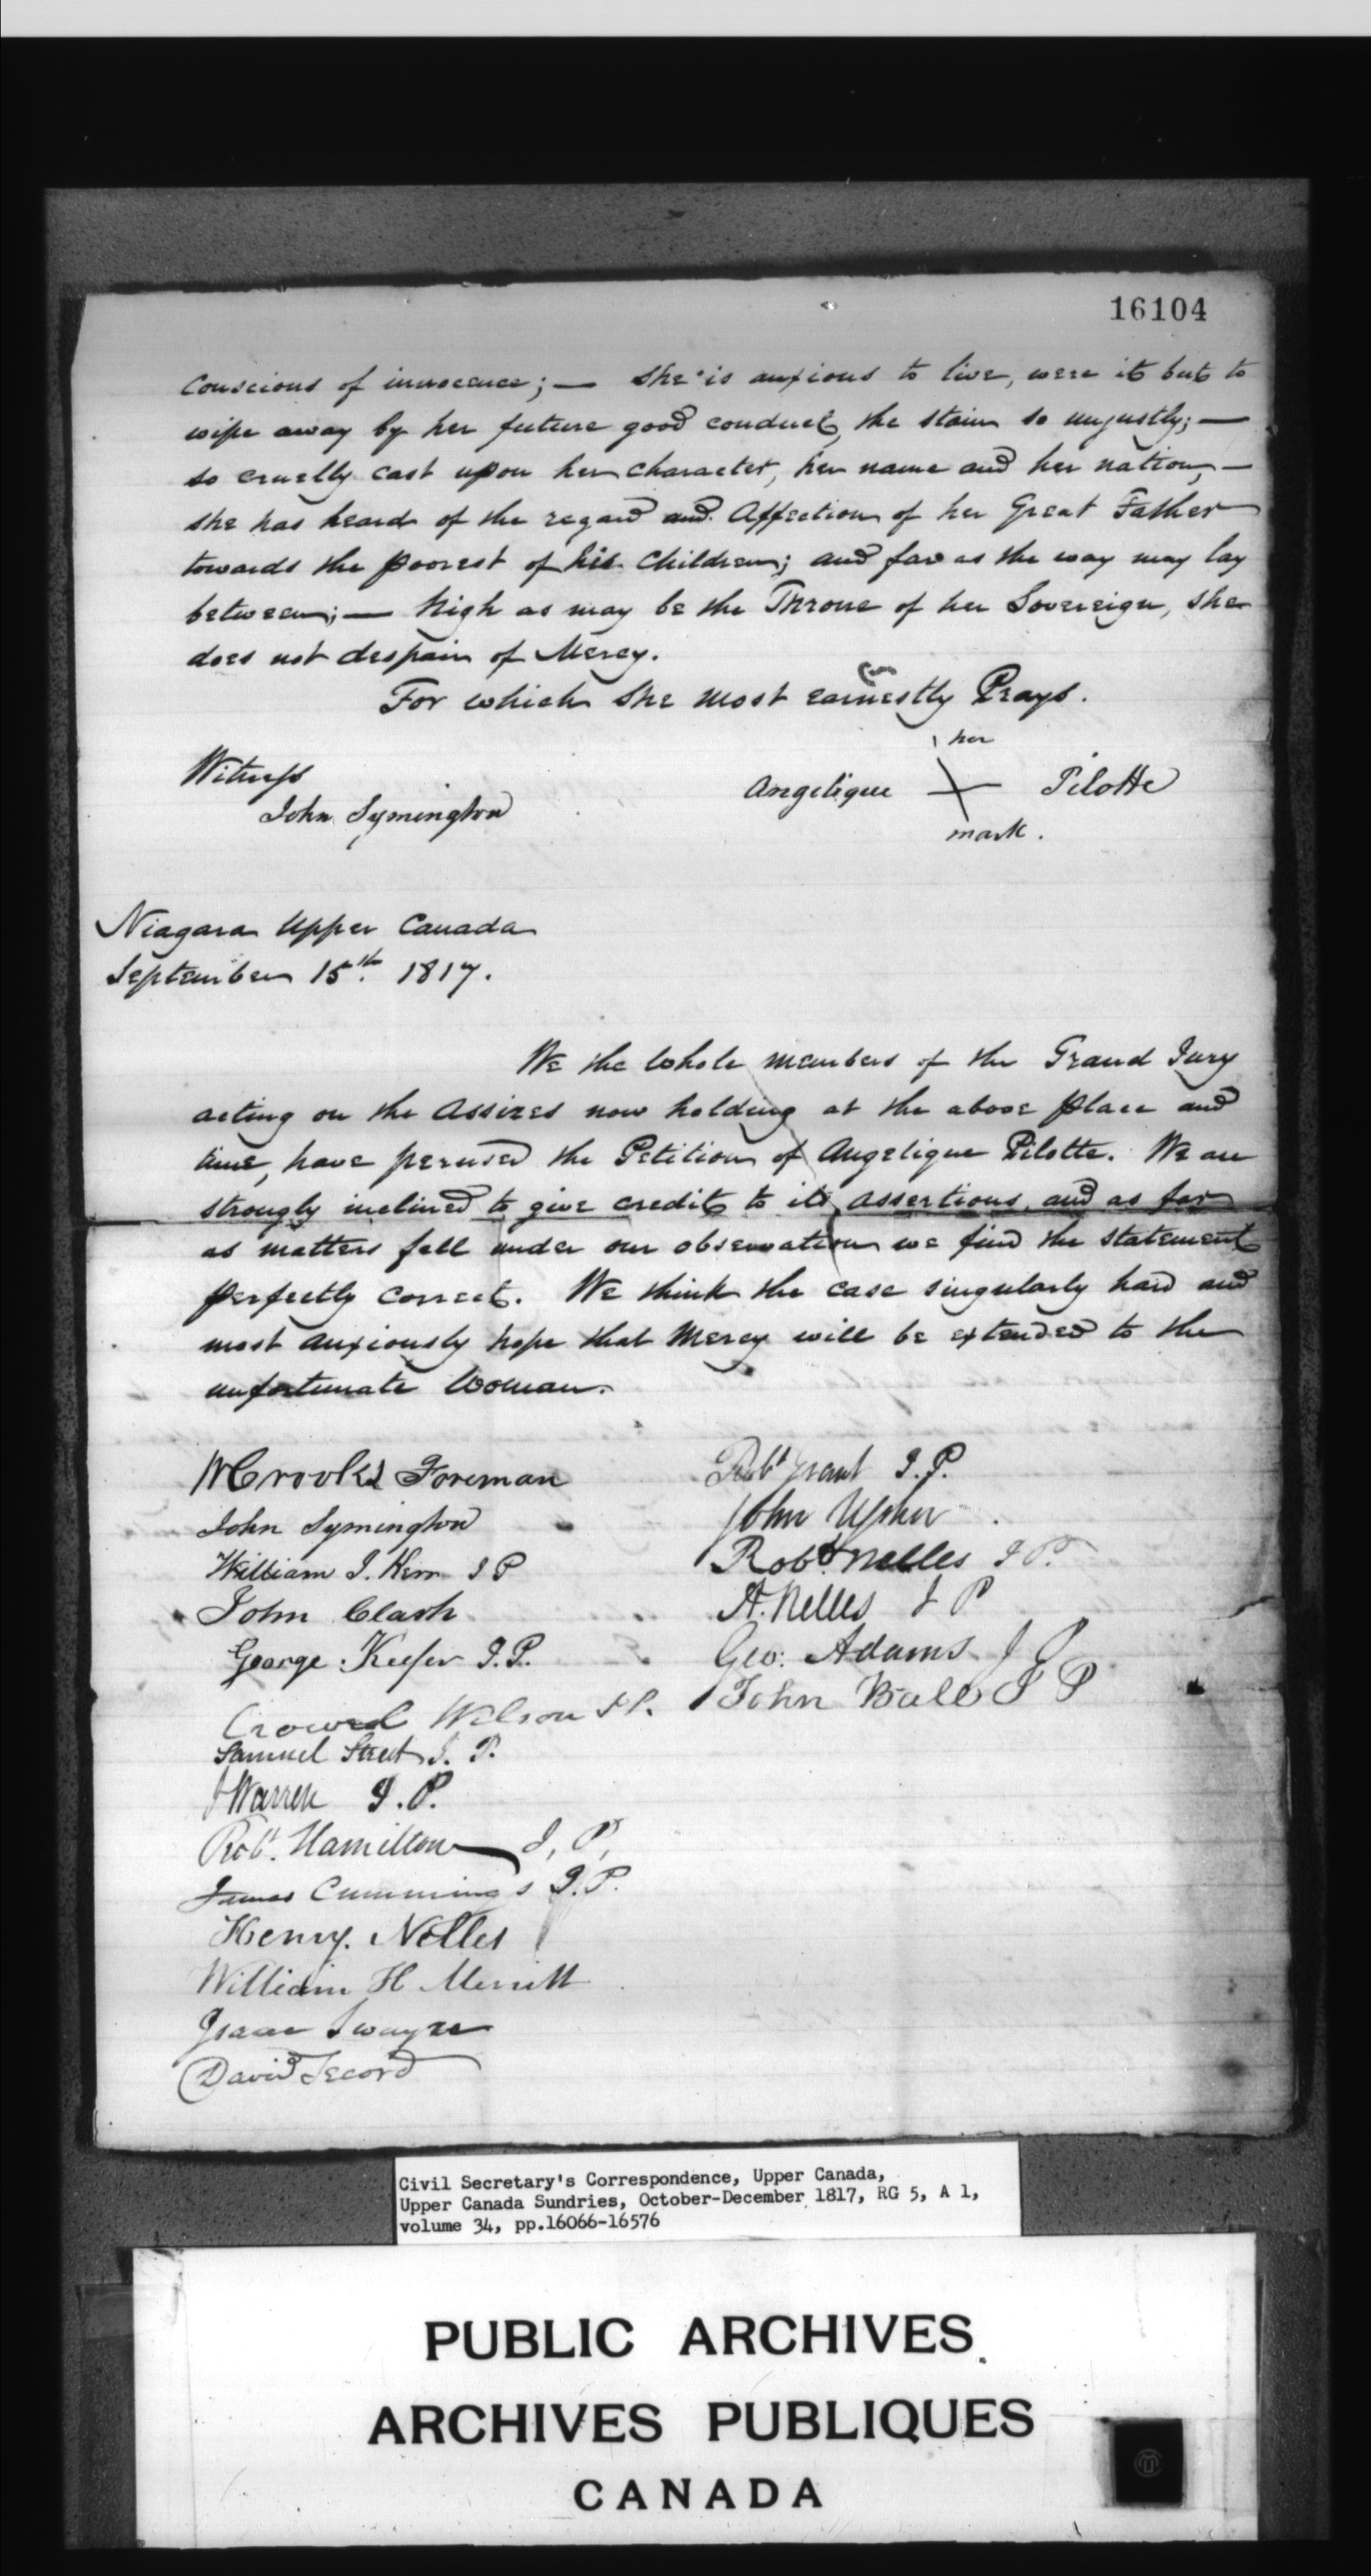 16104
Conscious of innocence; — She is anxious to live, were it but to
wipe away by her future good conduct, the stain so unjustly; —
so cruelly cast upon her character, her name and her nation, —
she has heard of the regard and Affection of her Great Father
towards the poorest of his Children; and far as the way may lay
between; — high as may be the Throne of her Sovereign, she
does not despair of Mercy.
For which She most earnestly Prays.
her
Witness
Angelique X Pilotte
John Symington
mark.
Niagara Upper Canada
September 15th. 1817.
We the whole members of the Grand Jury
acting on the Assizes now holding at the above place and
time, have perused the Petition of Angelique Pilotte. We are
strongly inclined to give credit to its assertions, and as far
as matters fell under our observation we find the statement
perfectly correct. We think the case singularly hard and
most anxiously hope that Mercy will be extended to the
unfortunate Woman.
WCrooks Foreman
Robt Grant J.P.
John Symington
John Usher
William J. Kerr J P
Robt. Nelles J P.
John Clark
A. Nelles J P
George Keefer J.P.
Geo: Adams J P
Crowel Wilson J.P.
John Ball J P
Samuel Street J. P.
J Warren J.P.
Robt. Hamilton J, P,
James Cummings J.P.
Henry. Nelles
William H Merritt
Isaac Swayze
David Secord
Civil Secretary's Correspondence, Upper Canada,
Upper Canada Sundries, October-December 1817, RG 5, A 1,
volume 34, pp.16066-16576
PUBLIC ARCHIVES
ARCHIVES PUBLIQUES
CANADA